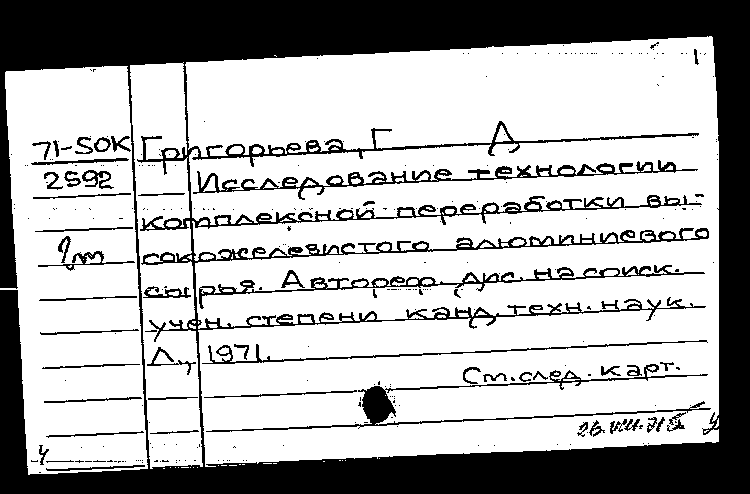 1
71-50К Григорьева, Г Д
2592 Исследование технологии
комплексной переработки вы-
сокожелезистого алюминиевого
сырья. Автореф. дис. на соиск.
учен. степени канд. техн. наук.
Л., 1971.
См. след. карт.
26.VIII.71